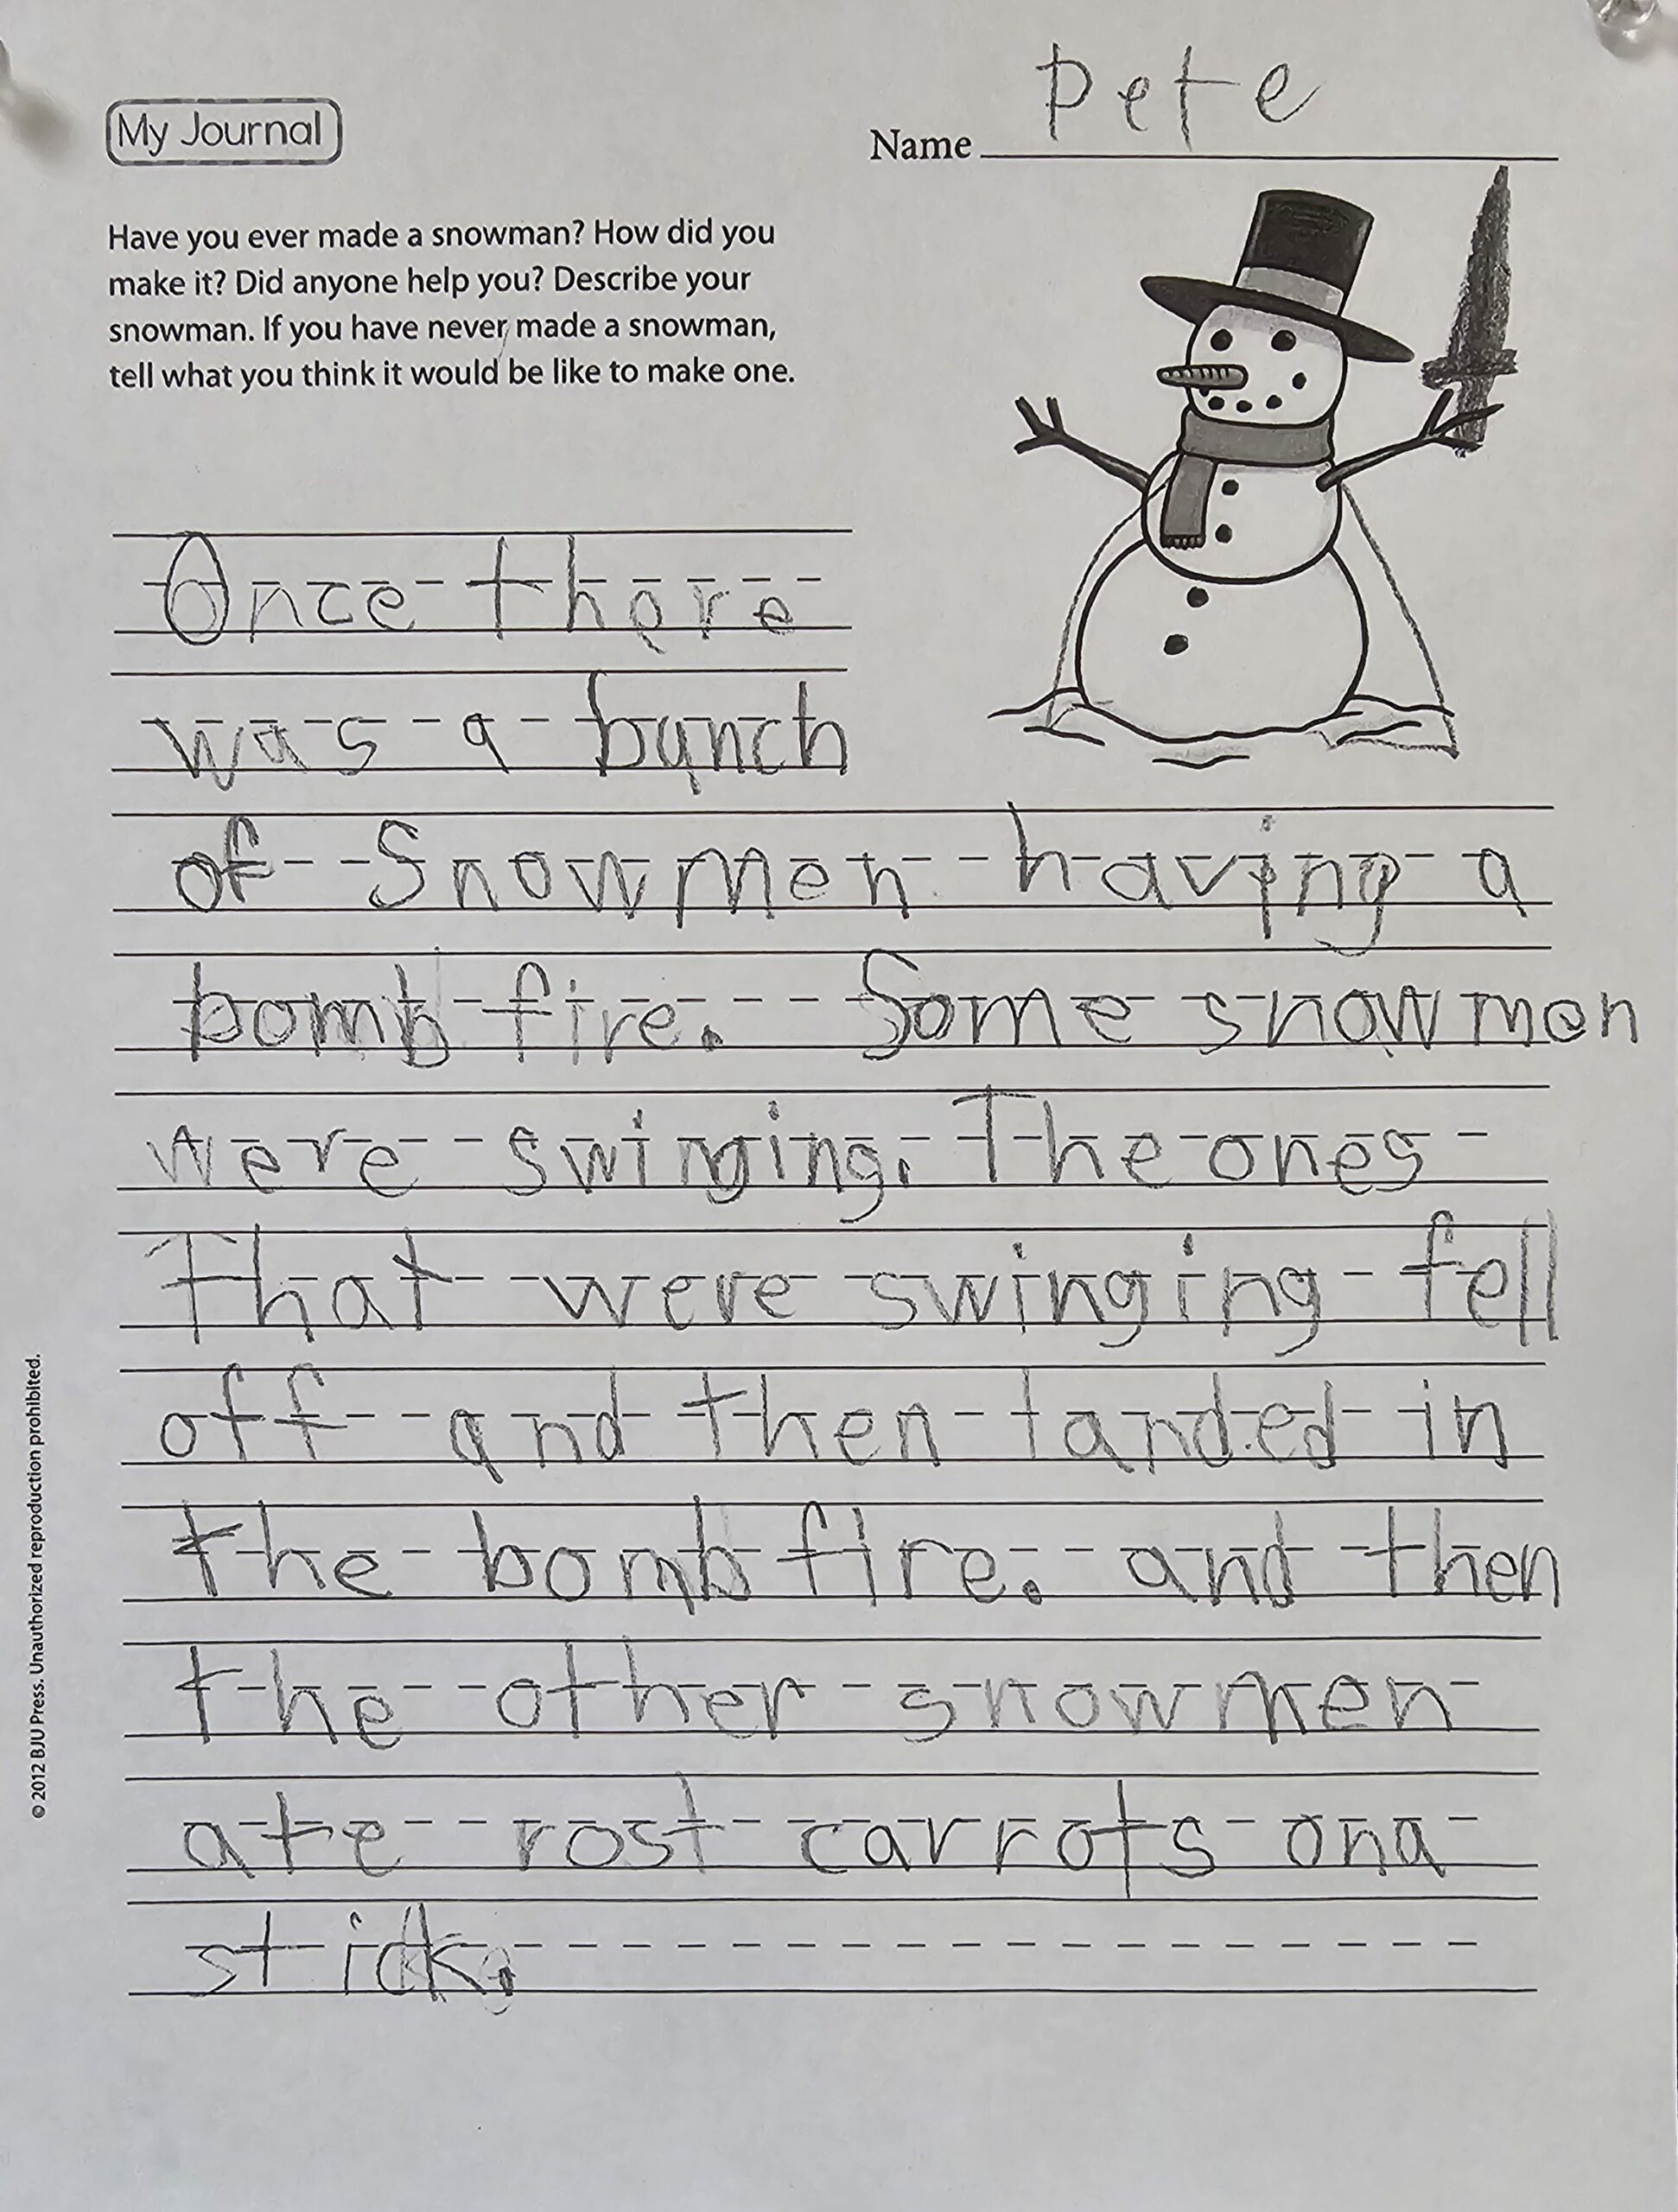 My Journal
Name Pete
Have you ever made a snowman? How did you
make it? Did anyone help you? Describe your
snowman. If you have never made a snowman,
tell what you think it would be like to make one.
Once there
was a bunch
of Snowmen having a
bomb fire. Some snowmen
were swinging. The ones
That were swinging fell
off and then landed in
the bomb fire. and then
the other snowmen
ate rost carrots on a
stick.
© 2012 BJU Press. Unauthorized reproduction prohibited.